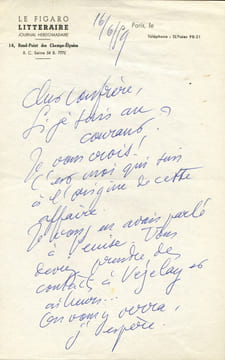 LE FIGARO
LITTERAIRE
JOURNAL HEBDOMADAIRE
14, Rond-Point des Champs-Élysées
R. C. Seine 54 B. 7772
Paris, le
16/6/59
Téléphone : ELYsées 98-31
Cher confrère,
Si je suis au
courant ?
Je vous crois !
C'est moi qui suis
à l'origine de cette
affaire.
Je vous en avais parlé
à Venise. Vous
devez prendre de
contacts à Vézelay et
ailleurs...
On vous y verra,
j'espère.